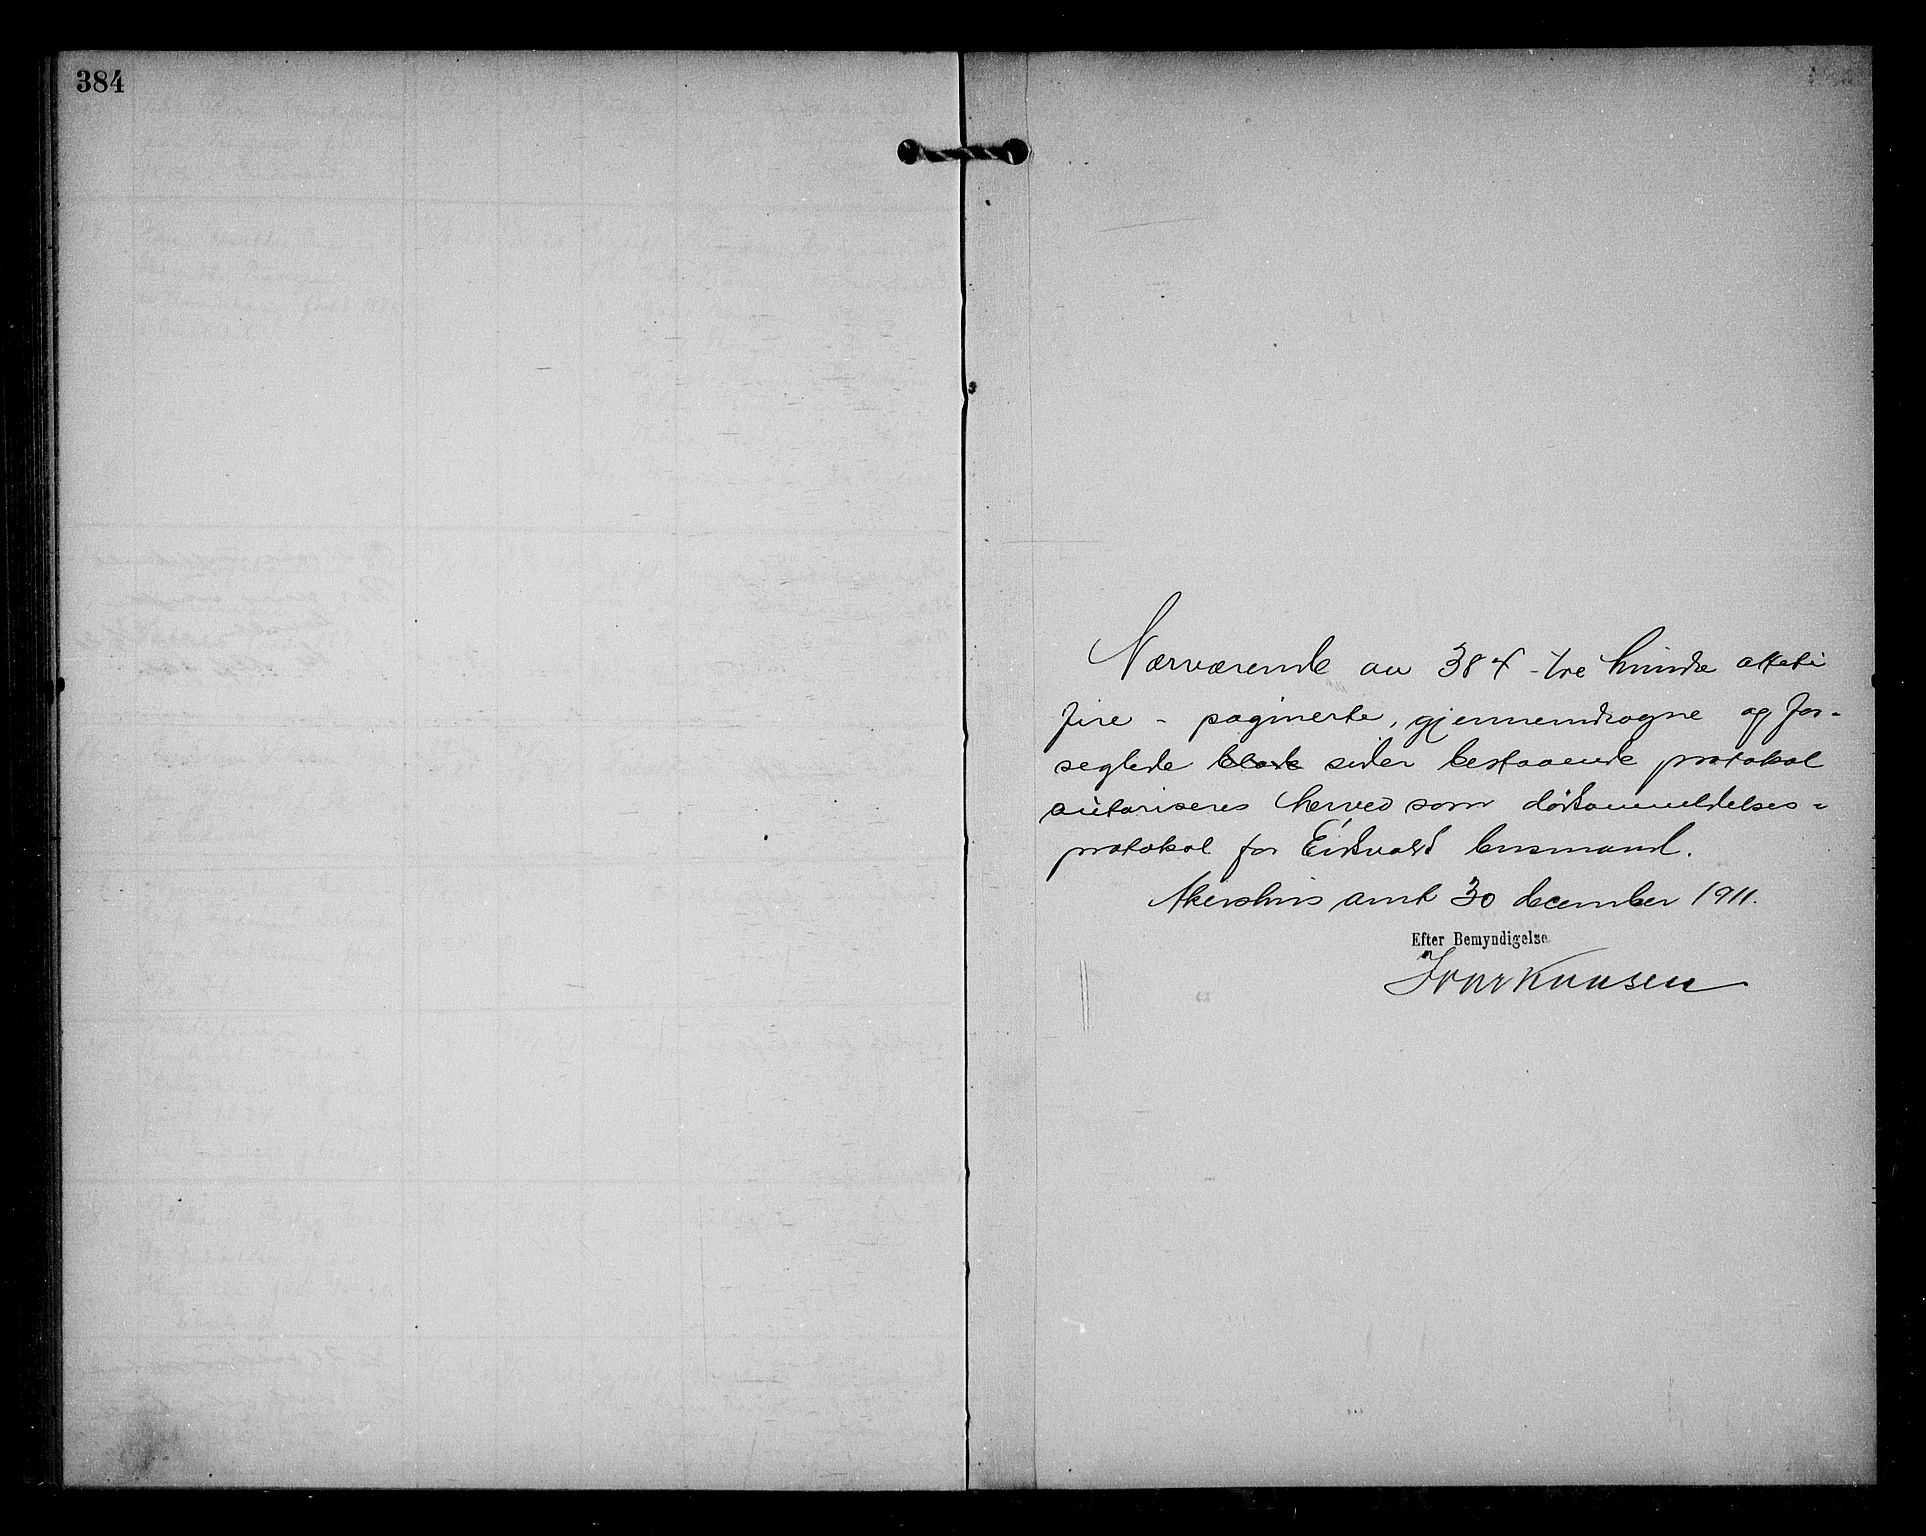 384
Nærværende av 384 - tre hundre otteti
fire - paginerte, gjennemdragne og for-
seglede blade sider bestaaende protokol
autoriseres herved som dødsanmeldelses-
protokol for Eidsvold lensmand.
Akershus amt 30 december 1911.
Efter Bemyndigelse